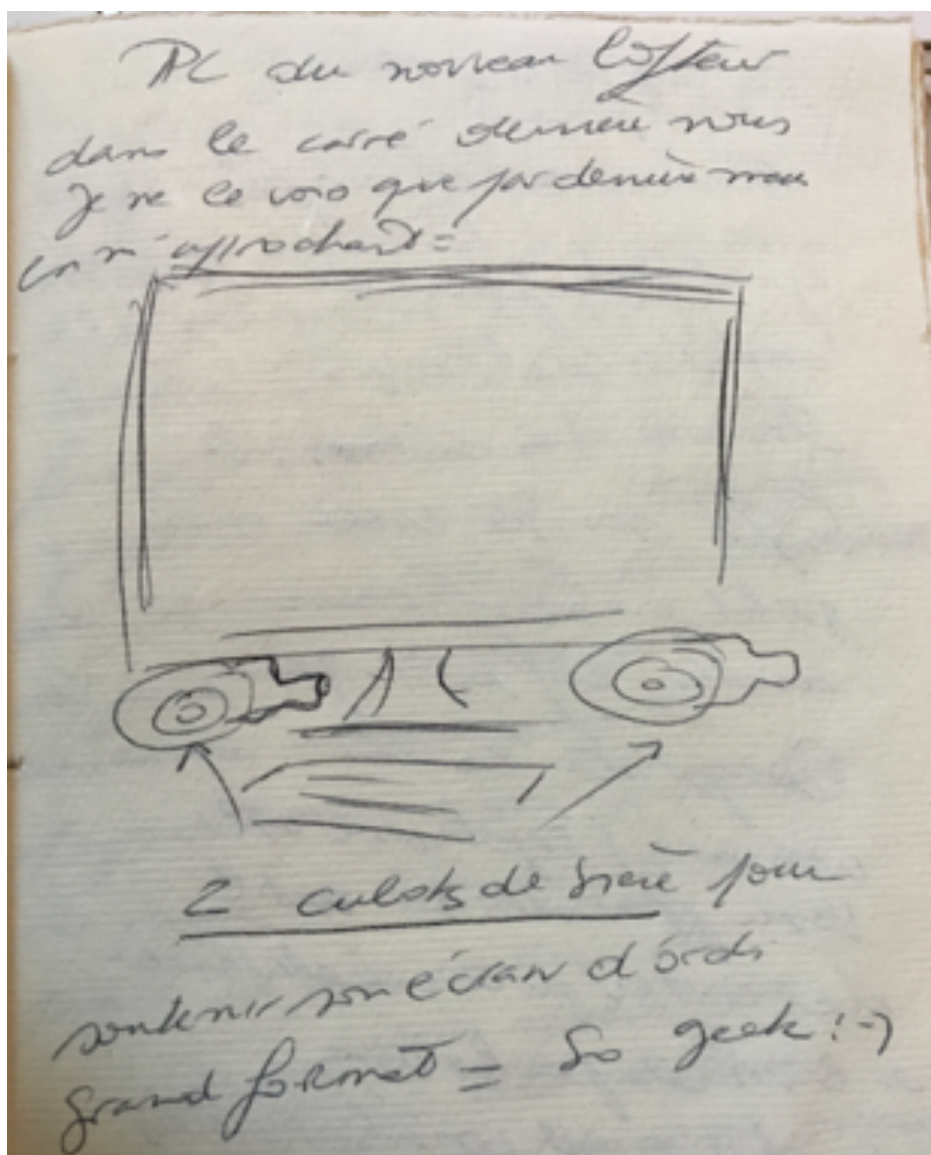 PC du nouveau lofteur
dans le carré derrière nous
Je ne le vois que par derrière mais
en m'approchant =
2 culots de bière pour
soutenir son écran d'ordi
grand format = So geek :-)